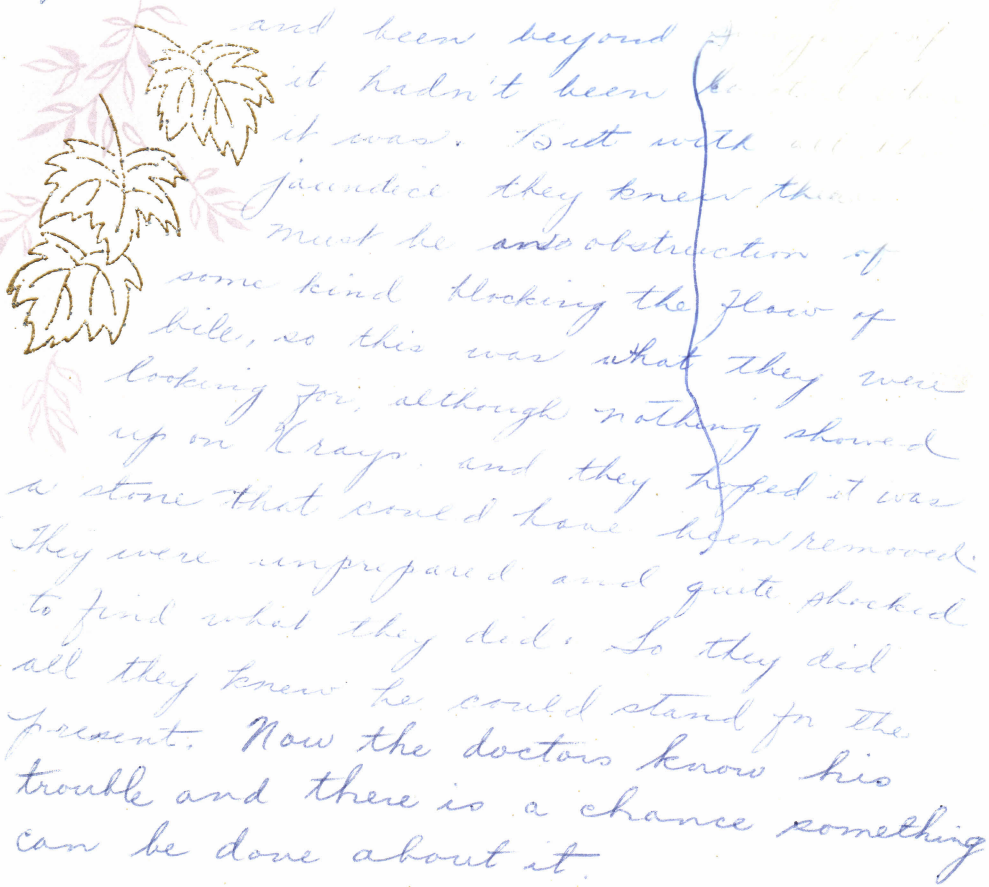 and been beyond
it hadn't been
it was. But with
jaundice they knew
must be an obstruction of
some kind blocking the flow of
bile, so this was what they were
looking for, although nothing showed
up on Xrays. and they hoped it was
a stone that could have been removed.
They were unprepared and quite shocked
to find what they did. So they did
all they knew he could stand for the
present. Now the doctors know his
trouble and there is a chance something
can be done about it.